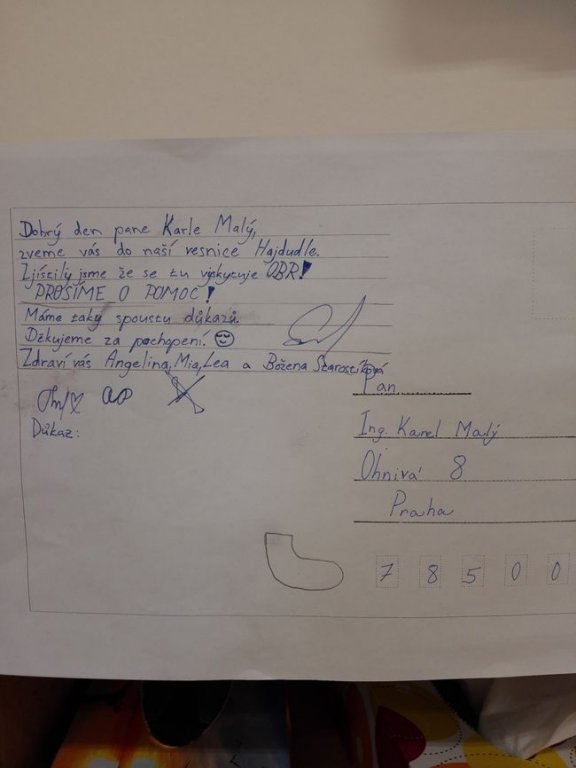 Dobrý den pane Karle Malý,
zveme vás do naší vesnice Hajdudle.
Zjistily jsme že se tu vyskytuje OBR!
PROSÍME O POMOC!
Máme taky spoustu důkazů.
Děkujeme za pochopení.
Zdraví vás Angelina, Mia, Lea a Božena Starostíková
Důkaz:
Pan
Ing. Karel Malý
Ohnivá 8
Praha
7 8 5 0 0